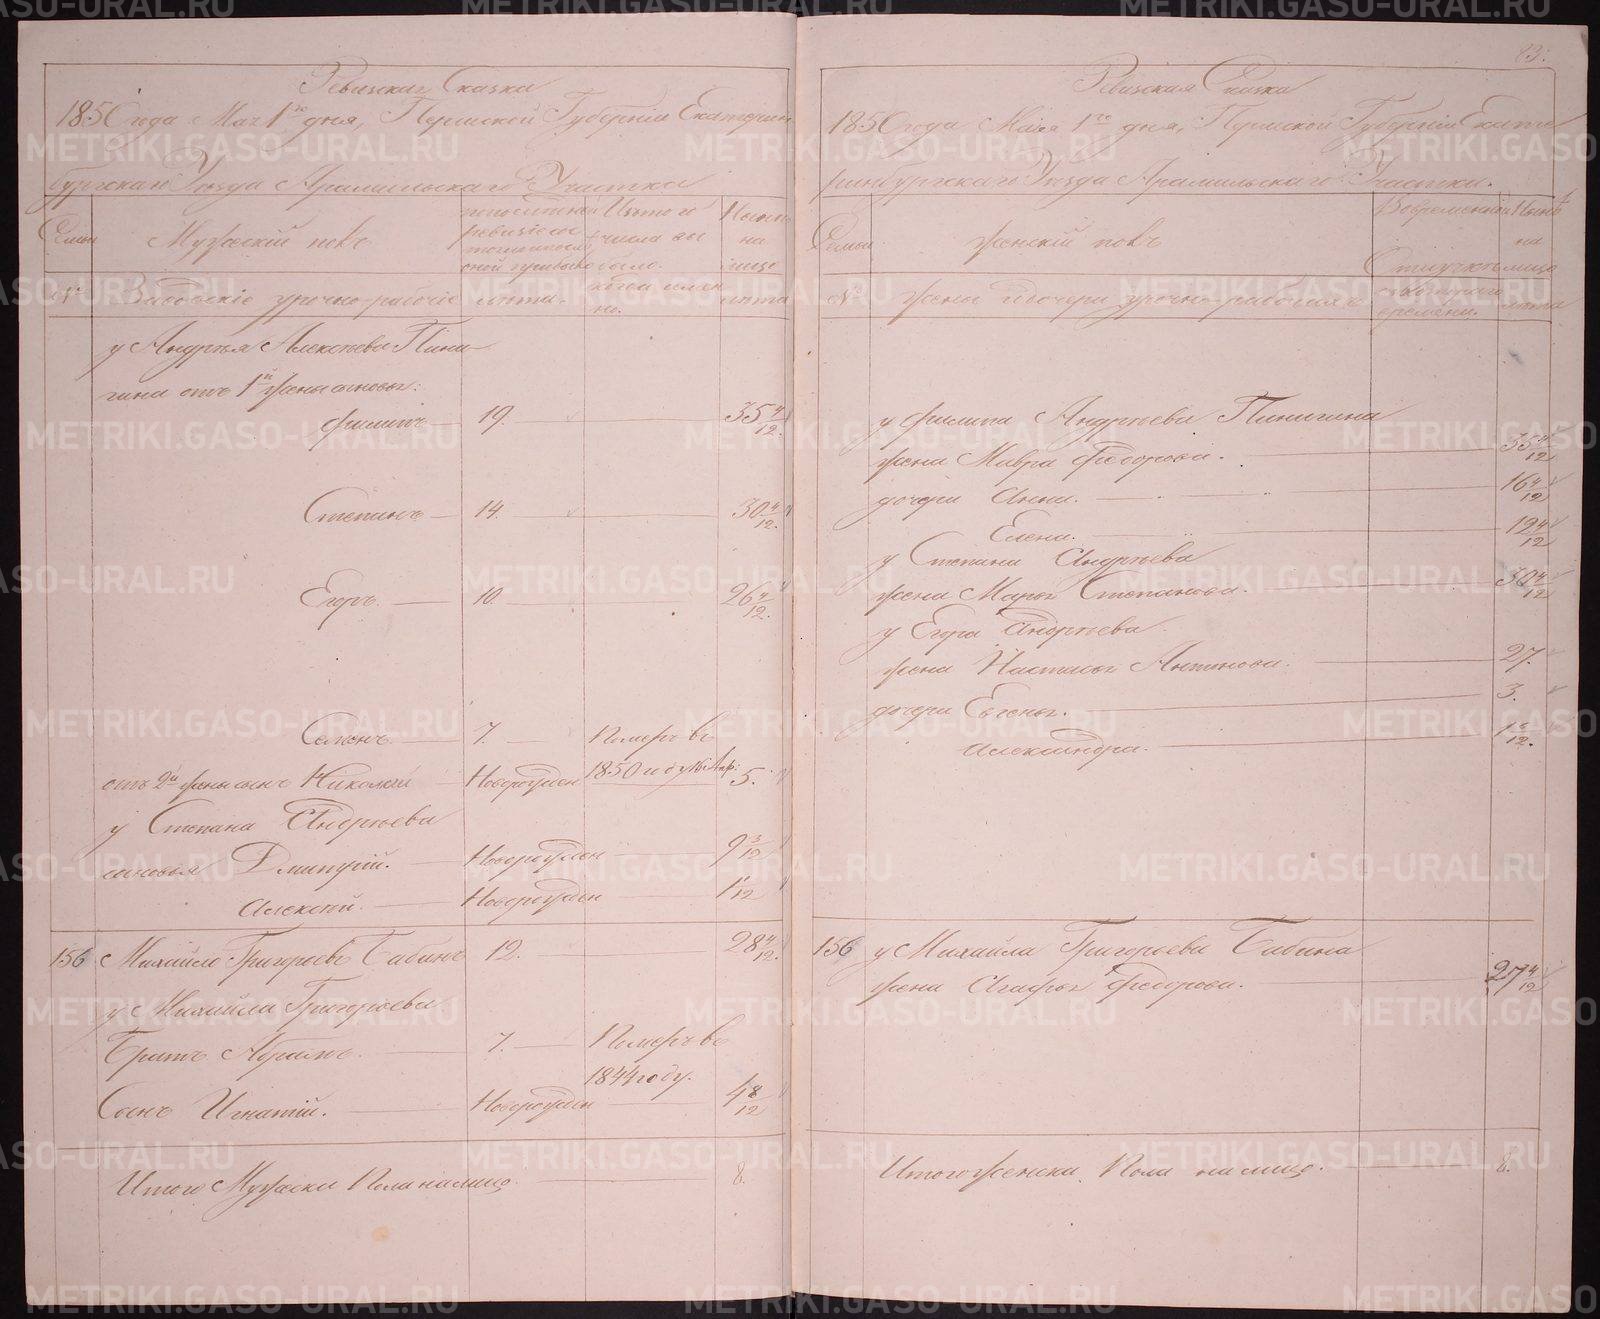 Ревизская Сказка
1850 года Мая 1го дня, Пермской Губернии Екатерин
бургскаго Уезда Арамильскаго Участка
Семьи
Мужеский полъ
№
Заводскіе урочно-рабочіе
лета.
Изъ того
числа вы
было.
когда имен
но.
Ныне
на
лицо
лета
у Андрея Алексеева Пини
гина отъ 1й жены сыновья:
Филиппъ 19. 35 4/12.
Степанъ 14. 30 4/12.
Егоръ. 10. 26 4/12.
Семенъ. 7. Померъ въ
1850 году 16 Апр:
отъ 2й жены сынъ Николай Новорожден 5.
у Степана Андреева
сыновья Дмитрій. Новорожден 9 3/12
Алексей. Новорожден 1/12
156 Михайло Григорьевъ Бабинъ 12. 28 4/12.
у Михайла Григорьева
Братъ Абрамъ. 7. Померъ въ
1844 году.
Сынъ Игнатій. Новорожден 4 8/12
Итого Мужеска Пола налицо. 8.
83.
Ревизская Сказка
1850 года Мая 1го дня, Пермской Губерніи Екате
ринбургскаго Уезда Арамильскаго Участка.
Семьи
Женскій полъ
№
жены и дочери урочно-рабочихъ
Во временной
Отлучке
съ котораго
времени.
Ныне
на
лицо
лета
у Филиппа Андреева Пинигина
жена Мавра Федорова. 35 4/12
дочери Анна. 16 4/12
Елена. 12 4/12
у Степана Андреева
жена Марья Степанова. 30 4/12
у Егора Андреева
жена Настасья Антонова. 27.
дочери Евгенья. 3.
Александра. 1 6/12.
156 у Михайла Григорьева Бабина
жена Агафья Федорова. 27 4/12
Итого Женска Пола налицо. 8.
METRIKI.GASO-URAL.RU